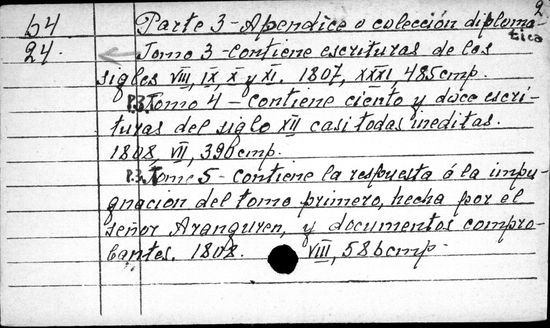 2
64 Parte 3-Apendice o colección diploma-
tica
24. Tomo 3-contiene escrituras de los
sigles VIII, IX, X y XI. 1807, XXXI, 485cmp.
P.3. Tomo 4 - contiene ciento y doce escri-
turas del siglo XII casi todas ineditas.
1808, VII, 396cmp.
P.3. Tomo 5 - contiene la respuesta á la impu-
gnacion del tomo primero, hecha por el
señor Aranguren, y documentos compro-
bantes. 1808. VIII, 586cmp.